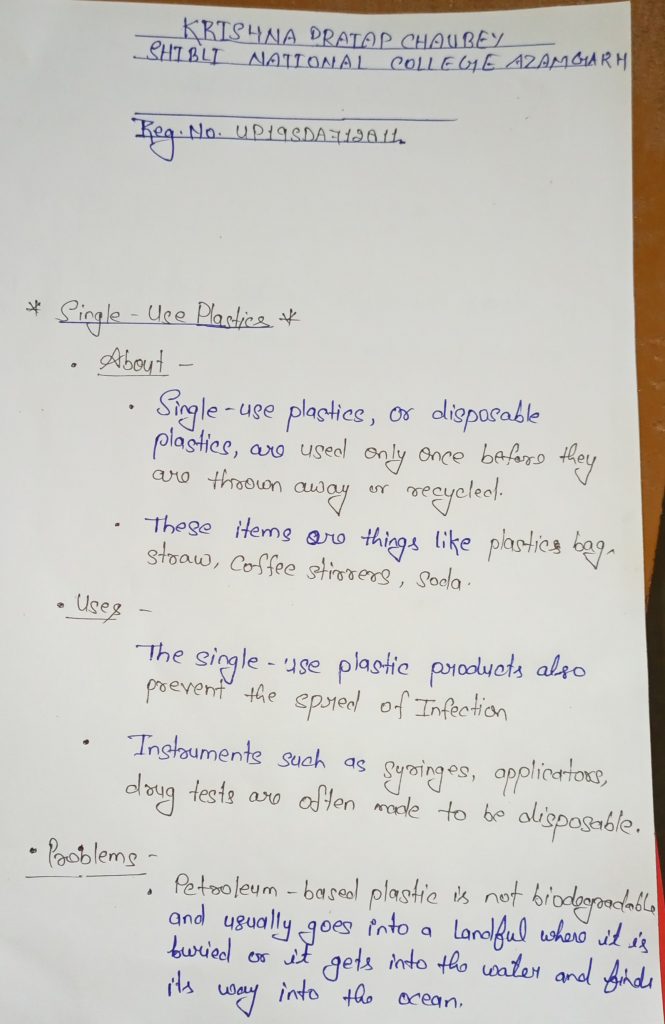 KRISHNA PRATAP CHAUBEY
SHIBLI NATIONAL COLLEGE AZAMGARH
Reg. No. UP19SDA712011
* Single-Use Plastics *
• About -
• Single-use plastics, or disposable
plastics, are used only once before they
are thrown away or recycled.
• These items are things like plastics bag,
straw, coffee stirrers, soda.
• Uses -
The single-use plastic products also
prevent the spred of Infection
• Instruments such as syringes, applicators,
drug tests are often made to be disposable.
• Problems -
• Petroleum-based plastic is not biodegradable
and usually goes into a landful where it is
buried or it gets into the water and finds
its way into the ocean.